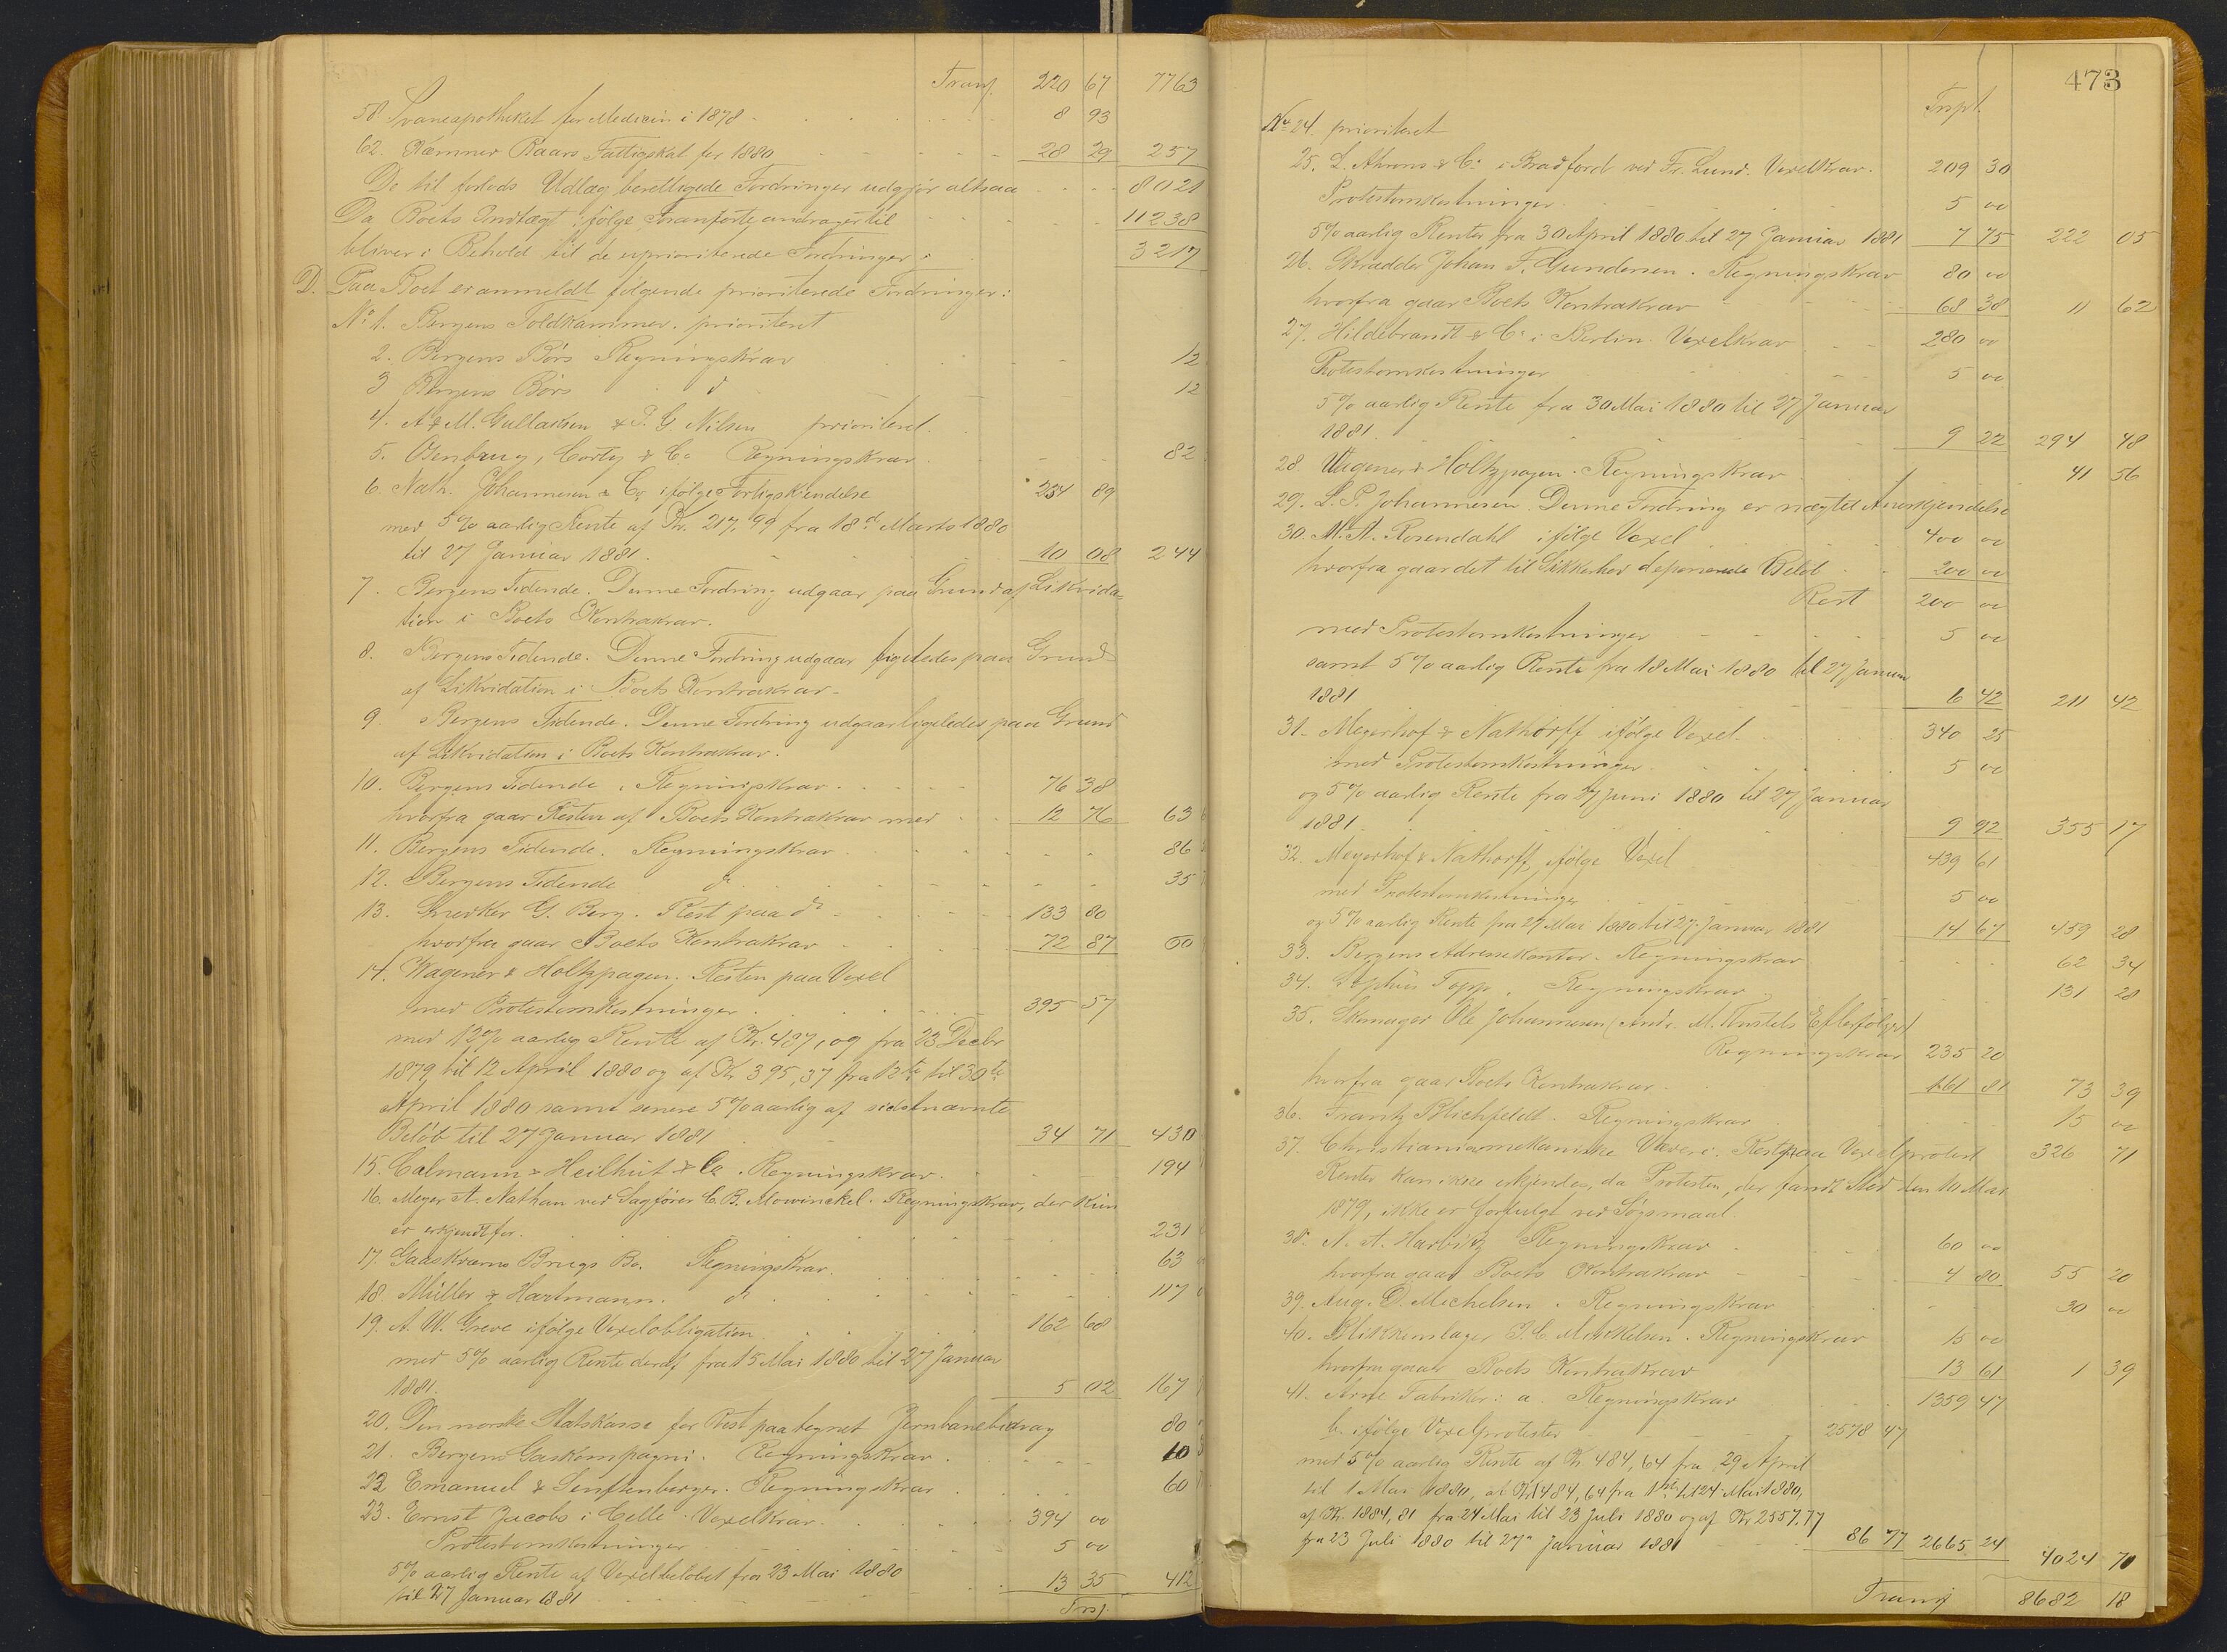 Transp. 220 67 7763
58. Svaneapotheket for Medicin i 1878 8 93
62. Kæmner Baars Fattigskat for 1880 28 29 257
De til forlods Udlæg berettigede Fordringer udgjør altsaa 8021
Da Boets Indtægt ifølge Transporte andrager til 11238
bliver i Behold til de uprioriterede Fordringer 3217
D. Paa Boet er anmeldt følgende prioriterede Fordringer:
No 1. Bergens Toldkammer. prioriteret
2. Bergens Børs Regningskrav 12
3 Bergens Børs do 12
4. A & M. Gullaksen & P. G. Nilsen prioriteret.
5. Osenbrug, Corty & Co Regningskrav 82
6. Nath. Johannesen & Co ifølge Forligskjendelse 234 89
med 5% aarlig Rente af Kr. 217,99 fra 18d Marts 1880
til 27 Januar 1881. 10 08 244
7. Bergens Tidende. Denne Fordring udgaar paa Grund af Likvida=
tion i Boets Kontrakrav.
8. Bergens Tidende. Denne Fordring udgaar ligeledes paa Grund
af Likvidation i Boets Kontrakrav.
9. Bergens Tidende. Denne Fordring udgaar ligeledes paa Grund
af Likvidation i Boets Kontrakrav.
10. Bergens Tidende, Regningskrav 76 38
hvorfra gaar Resten af Boets Kontrakrav med 12 76 63
11. Bergens Tidende. Regningskrav 86
12. Bergens Tidende do 35
13. Snedker G. Berg. Rest paa do 133 80
hvorfra gaar Boets Kontrakrav 72 87 60
14. Wagener & Holtzpagen. Resten paa Vexel
med Protestomkostninger 395 57
med 12% aarlig Rente af Kr. 487,09 fra 23 Decbr
1879 til 12 April 1880 og af Kr 395,37 fra 12te til 30te
April 1880 samt senere 5% aarlig af sidstnævnte
Beløb til 27 Januar 1881 34 71 430
15. Calmann & Heilhut & Co. Regningskrav. 194
16. Meyer A. Nathan ved Sagfører C. B. Mowinckel. Regningskrav, der kun
er erkjendt for. 231
17. Gaaskværns Brugs Bo. Regningskrav. 63
18. Müller & Hartmann. do 117
19. A. W. Greve ifølge Vexelobligation 162 68
med 5% aarlig Rente deraf fra 15 Mai 1880 til 27 Januar
1881. 5 02 167
20. Den norske Statskasse for Rest paa tegnet Jernbanebidrag 80
21. Bergens Gaskompagni. Regningskrav. 10
22 Emanuel & Senftenberger. Regningskrav 60
23. Ernst Jacobs i Celle. Vexelkrav. 394 00
Protestomkostninger 5 00
5% aarlig Rente af Vexelbeløbet fra 23 Mai 1880
til 27 Januar 1881 13 35 412
Trsp.
473
Trspt.
No 24. prioriteret
25. L. Ahrons & Co i Bradford ved Fr. Lund. Vexelkrav. 209 30
Protestomkostninger 5 00
5% aarlig Renter fra 30 April 1880 til 27 Januar 1881 7 75 222 05
26. Skrædder Johan F. Gundersen. Regningskrav 80 00
hvorfra gaar Boets Kontrakrav 68 38 11 62
27. Hildebrandt & Co i Berlin. Vexelkrav 280 00
Protestomkostninger 5 00
5% aarlig Rente fra 30 Mai 1880 til 27 Januar
1881. 9 22 294 48
28 Wagener & Holtzpagen. Regningskrav 41 56
29. L. P. Johannesen. Denne Fordring er nægtet Anerkjendelse
30. M. A. Rosendahl ifølge Vexel 400 00
hvorfra gaar det til Sikkerhed deponerede Beløb 200 00
Rest 200 00
med Protestomkostninger 5 00
samt 5% aarlig Rente fra 18 Mai 1880 til 27 Januar
1881 6 42 211 42
31. Meyerhof & Nathorff ifølge Vexel. 340 25
med Protestomkostninger 5 00
og 5% aarlig Rente fra 27 Juni 1880 til 27 Januar
1881. 9 92 355 17
32. Meyerhof & Nathorff, ifølge Vexel 439 61
med Protestomkostninger 5 00
og 5% aarlig Rente fra 27 Mai 1880 til 27. Januar 1881 14 67 459 28
33. Bergens Adressekontor. Regningskrav 62 34
34. Sophus Topp. Regningskrav 131 28
35. Skomager Ole Johannesen (Andr. M. Efterfølger)
Regningskrav 235 20
hvorfra gaar Boets Kontrakrav 161 81 73 39
36. Frantz Blichfeldt. Regningskrav 15 00
37. Christiania mekaniske Væveri. Rest paa Vexelprotest 326 71
Renter kan ikke erkjendes, da Protesten, der fandt Sted den 10 Mai
1879, ikke er forfulgt ved Søgsmaal.
38. A. A. Harbitz Regningskrav 60 00
hvorfra gaar Boets Kontrakrav 4 80 55 20
39. Aug. D. Michelsen. Regningskrav 30 00
40. Blikkenslager J. C. Mikkelsen. Regningskrav 15 00
hvorfra gaar Boets Kontrakrav 13 61 1 39
41. Arne Fabriker: a. Regningskrav 1359 47
b. ifølge Vexelprotester 2578 47
med 5% aarlig Rente af Kr. 484,64 fra 29 April
til 1 Mai 1880, af Kr 1484,64 fra 1ste til 24 Mai 1880,
af Kr. 1884,81 fra 24 Mai til 23 Juli 1880 og af Kr 2557,77
fra 23 Juli 1880 til 27de Januar 1881 86 77 2665 24
4024 70
Transp 8682 18